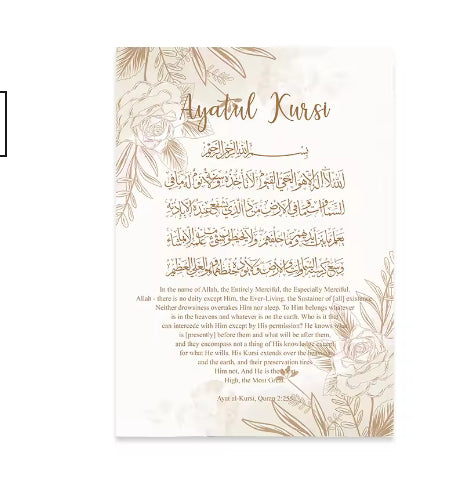 Ayatul Kursi
بسم الله الرحمن الرحيم
الله لا إله إلا هو الحي القيوم لا تأخذه سنة ولا نوم له ما في
السماوات وما في الأرض من ذا الذي يشفع عنده إلا بإذنه
يعلم ما بين أيديهم وما خلفهم ولا يحيطون بشيء من علمه إلا بما شاء
وسع كرسيه السماوات والأرض ولا يؤوده حفظهما وهو العلي العظيم
In the name of Allah, the Entirely Merciful, the Especially Merciful.
Allah - there is no deity except Him, the Ever-Living, the Sustainer of [all] existence.
Neither drowsiness overtakes Him nor sleep. To Him belongs whatever
is in the heavens and whatever is on the earth. Who is it that
can intercede with Him except by His permission? He knows what
is [presently] before them and what will be after them,
and they encompass not a thing of His knowledge except
for what He wills. His Kursi extends over the heavens
and the earth, and their preservation tires
Him not. And He is the Most
High, the Most Great.
Ayat al-Kursi, Quran 2:255